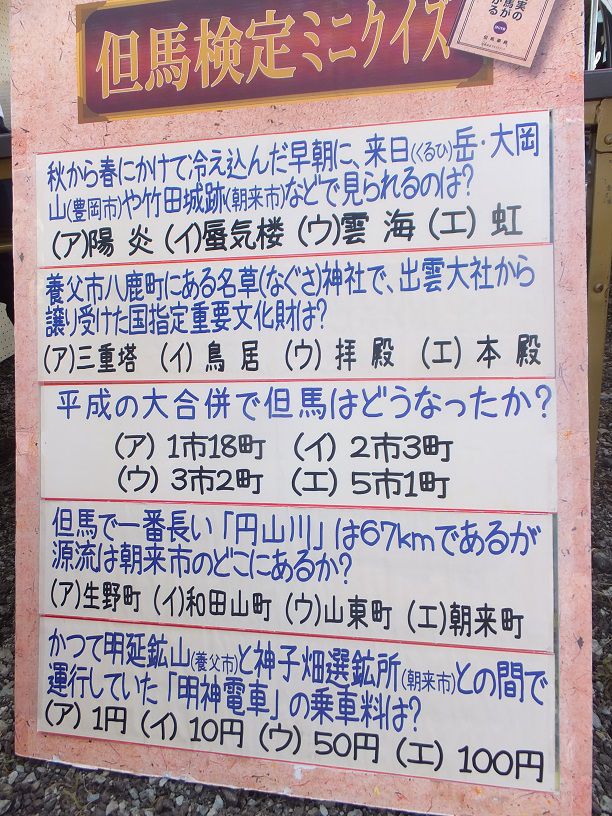 但馬検定ミニクイズ
秋から春にかけて冷え込んだ早朝に、来日(くるひ)岳・大岡
山(豊岡市)や竹田城跡(朝来市)などで見られるのは?
(ア)陽 炎 (イ)蜃気楼 (ウ)雲 海 (エ)虹
養父市八鹿町にある名草(なぐさ)神社で、出雲大社から
譲り受けた国指定重要文化財は?
(ア)三重塔 (イ)鳥 居 (ウ)拝 殿 (エ)本 殿
平成の大合併で但馬はどうなったか?
(ア)1市18町 (イ)2市3町
(ウ)3市2町 (エ)5市1町
但馬で一番長い「円山川」は67kmであるが
源流は朝来市のどこにあるか?
(ア)生野町 (イ)和田山町 (ウ)山東町 (エ)朝来町
かつて明延鉱山(養父市)と神子畑選鉱所(朝来市)との間で
運行していた「明神電車」の乗車料は?
(ア)1円 (イ)10円 (ウ)50円 (エ)100円